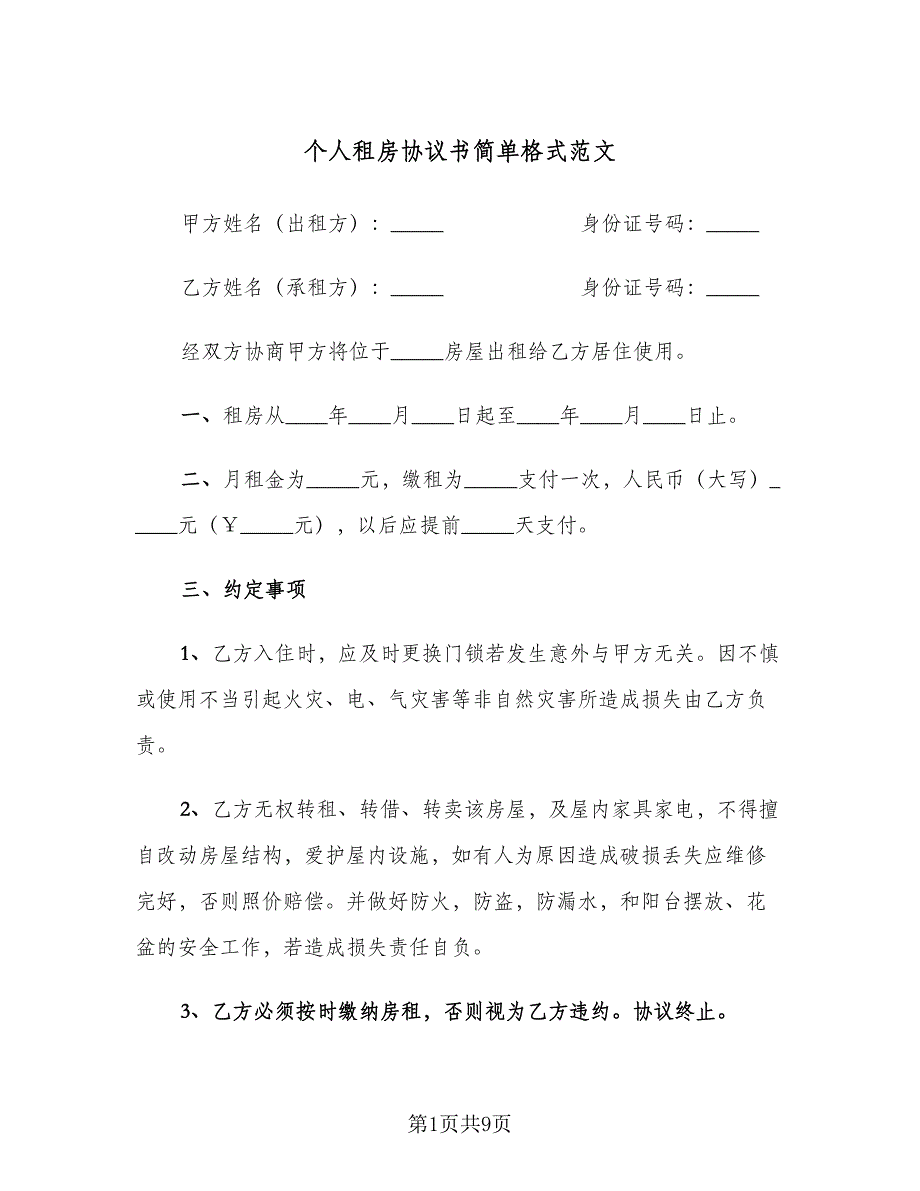 个人租房协议书简单格式范文
甲方姓名（出租方）：_____ 身份证号码：_____
乙方姓名（承租方）：_____ 身份证号码：_____
经双方协商甲方将位于_____房屋出租给乙方居住使用。
一、租房从____年____月____日起至____年____月____日止。
二、月租金为_____元，缴租为_____支付一次，人民币（大写）_
____元（￥_____元），以后应提前_____天支付。
三、约定事项
1、乙方入住时，应及时更换门锁若发生意外与甲方无关。因不慎
或使用不当引起火灾、电、气灾害等非自然灾害所造成损失由乙方负
责。
2、乙方无权转租、转借、转卖该房屋，及屋内家具家电，不得擅
自改动房屋结构，爱护屋内设施，如有人为原因造成破损丢失应维修
完好，否则照价赔偿。并做好防火，防盗，防漏水，和阳台摆放、花
盆的安全工作，若造成损失责任自负。
3、乙方必须按时缴纳房租，否则视为乙方违约。协议终止。
第1页共9页